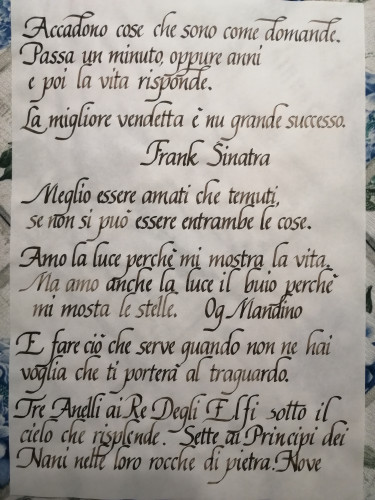 Accadono cose che sono come domande.
Passa un minuto, oppure anni
e poi la vita risponde.
La migliore vendetta è nu grande successo.
Frank Sinatra
Meglio essere amati che temuti,
se non si può essere entrambe le cose.
Amo la luce perchè mi mostra la vita.
Ma amo anche la luce il buio perchè
mi mosta le stelle. Og Mandino
E fare ciò che serve quando non ne hai
voglia che ti porterà al traguardo.
Tre Anelli ai Re Degli Elfi sotto il
cielo che risplende. Sette ai Principi dei
Nani nelle loro rocche di pietra. Nove